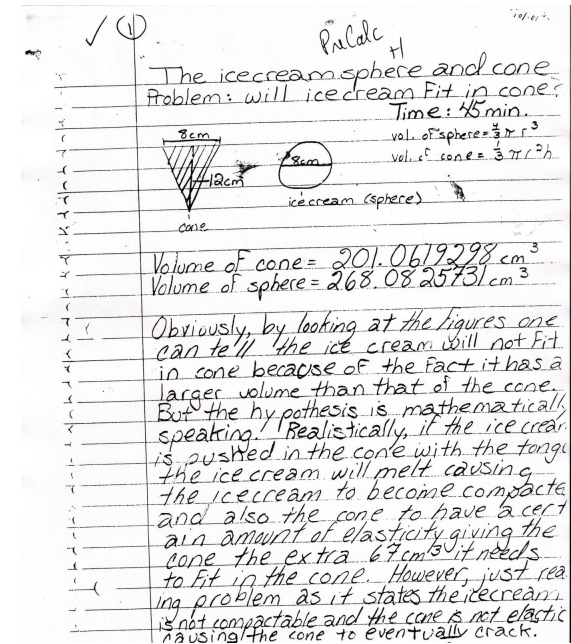 1
PreCalc
The icecream sphere and cone
Problem: will icecream Fit in cone?
Time: 45 min.
8cm
vol. of sphere = 4/3 π r^3
8cm
vol. of cone = 1/3 π r^2 h
12cm
icecream (sphere)
cone
Volume of cone = 201.0619298 cm^3
Volume of sphere = 268.0825731 cm^3
Obviously, by looking at the figures one
can tell the ice cream will not fit
in cone because of the fact it has a
larger volume than that of the cone.
But the hypothesis is mathematically
speaking. Realistically, if the ice cream
is pushed in the cone with the tongu
the ice cream will melt causing
the icecream to become compacte
and also the cone to have a cert
ain amount of elasticity giving the
cone the extra 67cm^3 it needs
to fit in the cone. However, just rea
ing problem as it states the icecream
is not compactable and the cone is not elastic
causing the cone to eventually crack.